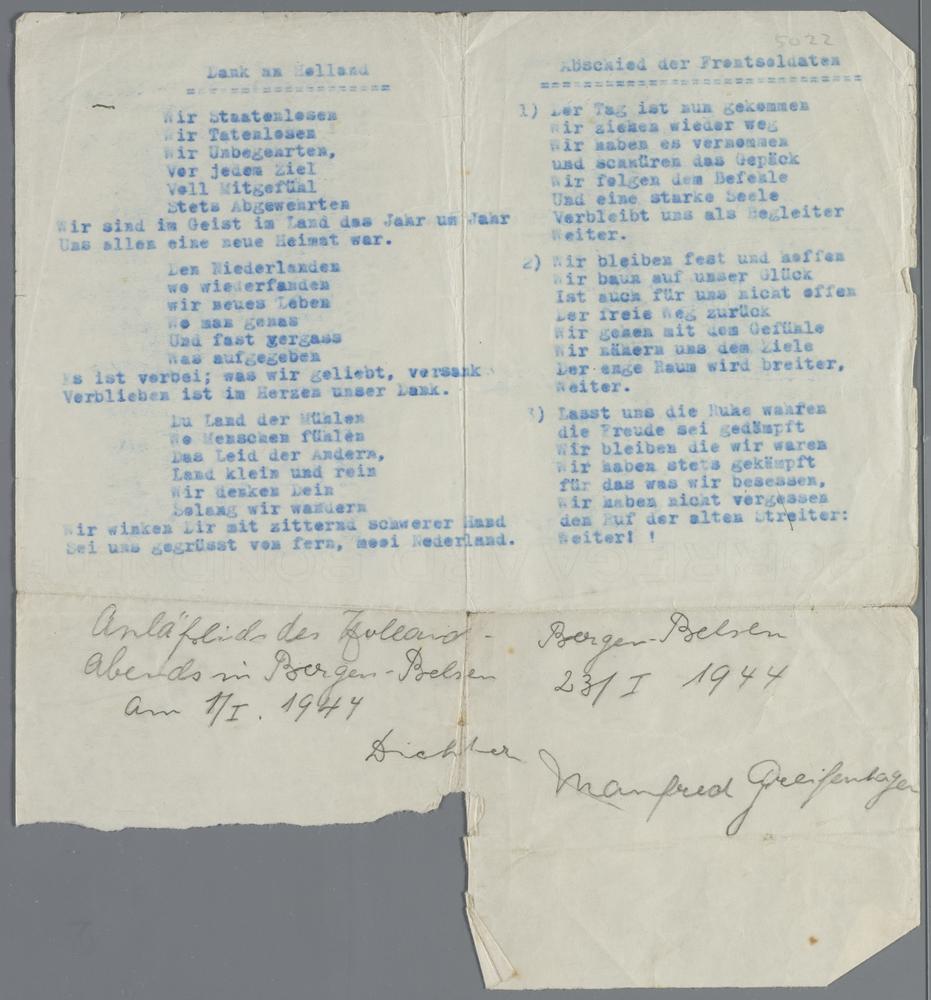 5022
Dank an Holland
==================
Wir Staatenlosen
Wir Tatenlosen
Wir Unbegehrten,
Vor jedem Ziel
Voll Mitgefühl
Stets Abgewehrten
Wir sind im Geist im Land das Jahr um Jahr
Uns allen eine neue Heimat war.
Den Niederlanden
wo wiederfanden
wir neues Leben
Wo man genas
Und fast vergass
Was aufgegeben
Es ist vorbei; was wir geliebt, versank
Verblieben ist im Herzen unser Dank.
Du Land der Mühlen
Wo Menschen fühlen
Das Leid der Andern,
Land klein und rein
Wir denken Dein
Solang wir wandern
Wir winken Dir mit zitternd schwerer Hand
Sei uns gegrüsst von fern, mooi Nederland.
Anläßlich des Holland-
Abends in Bergen-Belsen
am 1/I. 1944
Abschied der Frontsoldaten
============================
1) Der Tag ist nun gekommen
Wir ziehen wieder weg
Wir haben es vernommen
und schnüren das Gepäck
Wir folgen dem Befehle
Und eine starke Seele
Verbleibt uns als Begleiter
Weiter.
2) Wir bleiben fest und hoffen
Wir baun auf unser Glück
Ist auch für uns nicht offen
Der freie Weg zurück
Wir gehen mit dem Gefühle
Wir nähern uns dem Ziele
Der enge Raum wird breiter,
Weiter.
3) Lasst uns die Ruhe wahren
die Freude sei gedämpft
Wir bleiben die wir waren
Wir haben stets gekämpft
für das was wir besessen,
Wir haben nicht vergessen
den Ruf der alten Streiter:
Weiter! !
Bergen-Belsen
23/I 1944
Dichter Manfred Greifenhagen